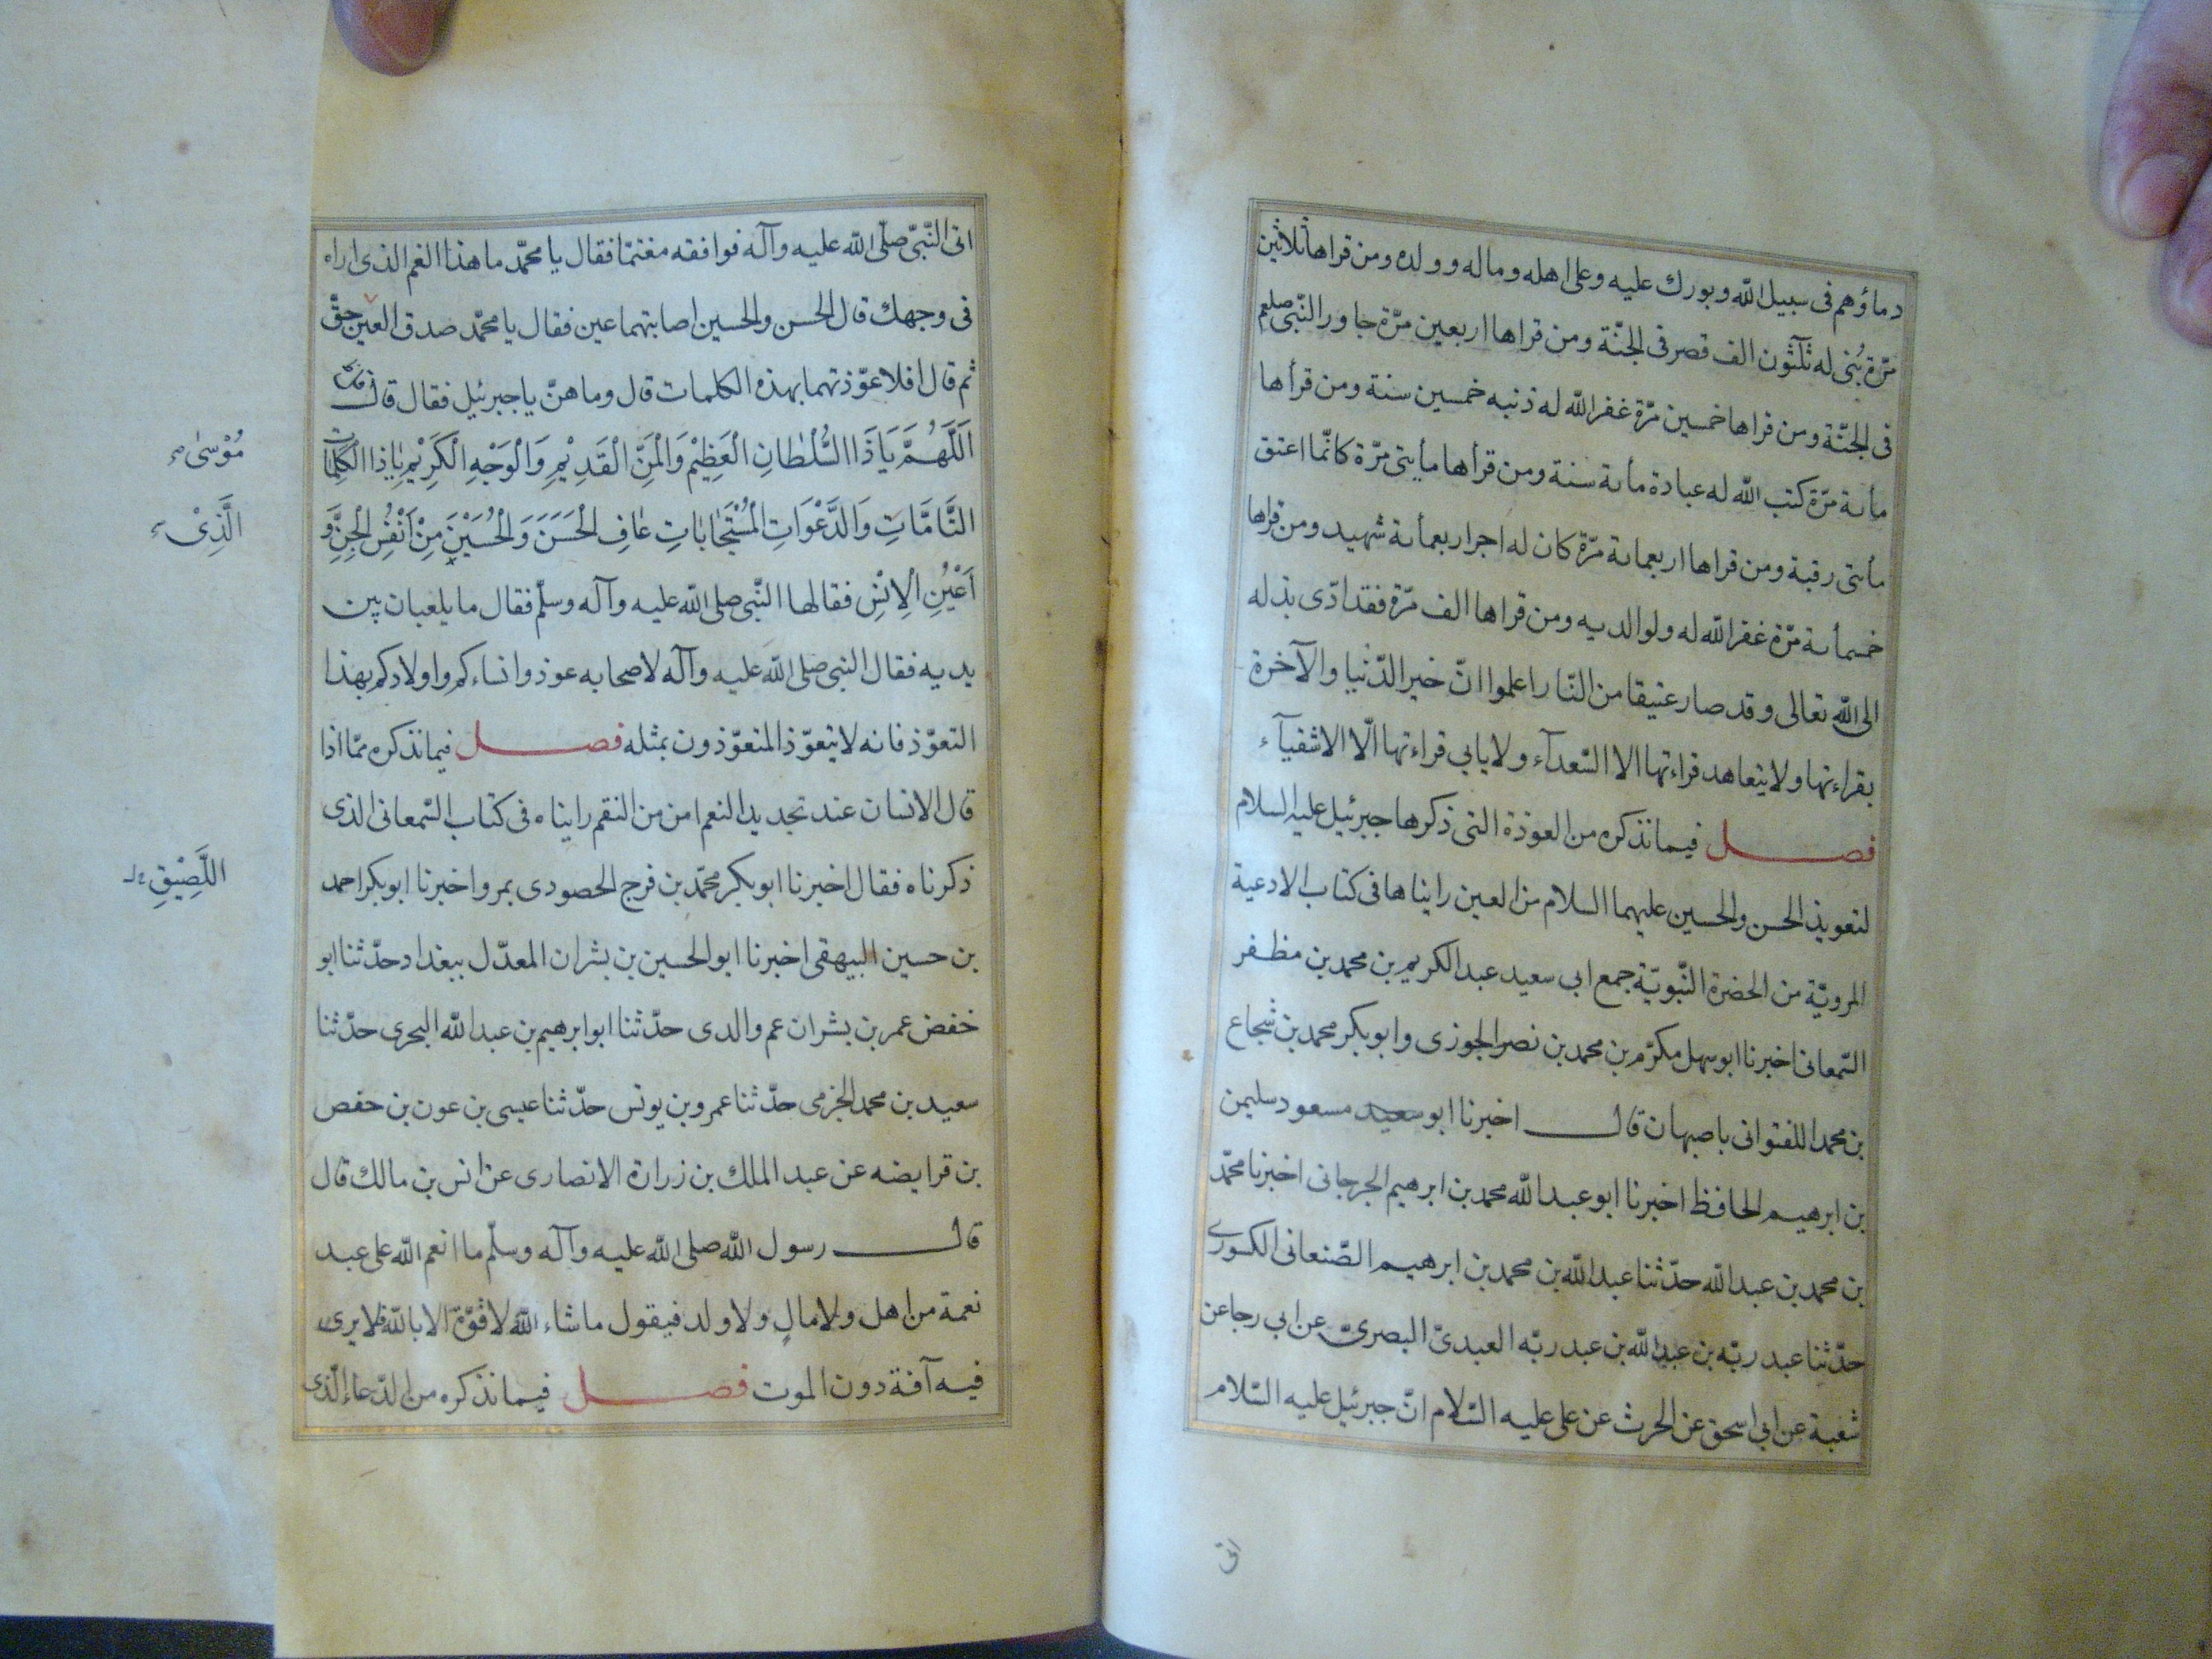 دماؤهم فى سبيل الله وبورك عليه وعلى اهله وماله وولده ومن قراها ثلاثين
مرّة بُنى له ثلثون الف قصر فى الجنّة ومن قراها اربعين مرّة جاور النّبى صلعم
فى الجنّة ومن قراها خمسين مرّة غفر الله له ذنبه خمسين سنة ومن قرأها
مأىة مرّة كتب الله له عبادة مأىة سنة ومن قرأها مأيتى مرّة كانّما اعتق
مأىتى رقبة ومن قراها اربعماىة مرّة كان له اجر اربعمأىة شهيد ومن قراها
خمسمأىة مرّة غفر الله له ولوالديه ومن قراها الف مرّة فقد ادّى بذله
الى الله تعالى وقد صار عتيقا من النّار اعلموا انّ خير الدّنيا والآخرة
بقراءتها ولا يتعاهد قراءتها الا السّعدآء ولا يابى قراءتها الّا الاشقيآء
فصل فيما نذكره من العوذة التى ذكرها جبرئيل عليه السلام
لتعويذ الحسن والحسين عليهما السلام من العين رايناها فى كتاب الادعية
المرويّة من الحضرة النّبويّة جمع ابى سعيد عبد الكريم بن محمد بن مظفر
السّمعانى اخبرنا ابو سهل مكرّم بن محمد بن نصر الجوزى وابو بكر محمد بن شجاع
بن محمد اللفتوانى باصبهان قال اخبرنا ابو سعيد مسعود سليمن
بن ابرهيم الحافظ اخبرنا ابو عبد الله محمد بن ابرهيم الجرجانى اخبرنا محمّد
بن محمد بن عبد الله حدّثنا عبد الله بن محمد بن ابرهيم الصّنعانى الكسورى
حدّثنا عبد ربّه بن عبد الله بن عبد ربّه العبدىّ البصرىّ عن ابى رجا عن
شعبة عن ابى اسحق عن الحرث عن على عليه السّلام انّ جبرئيل عليه السّلام
اتى النّبىّ صلّى الله عليه وآله فوافقه مغتمّا فقال يا محمّد ما هذا الغم الذى اراه
فى وجهك قال الحسن والحسين اصابتهما عين فقال يا محمّد صدق العين حقّ
ثم قال افلا عوّذتهما بهذه الكلمات قال وما هنّ يا جبرئيل فقال قال
اَللّٰهُمَّ يَا ذَا السُّلْطَانِ الْعَظِيْمِ وَالْمَنِّ الْقَدِيْمِ وَالْوَجْهِ الْكَرِيْمِ يَا ذَا الْكَلِمَاتِ
التَّامَّاتِ وَالدَّعَوَاتِ الْمُسْتَجَابَاتِ عَافِ الْحَسَنَ وَالْحُسَيْنَ مِنْ اَنْفُسِ الْجِنِّ وَ
اَعْيُنِ الْاِنْسِ فقالها النّبى صلى الله عليه وآله وسلّم فقال ما يلعبان بين
يديه فقال النبى صلى الله عليه وآله لاصحابه عوذوا نساءكم واولادكم بهذا
التعوّذ فانه لا يتعوّذ المتعوّذون بمثله فصل فيما نذكره ممّا اذا
قال الانسان عند تجديد النعم امن من النقم رايناه فى كتاب السّمعانى الذى
ذكرناه فقال اخبرنا ابو بكر محمّد بن فرج الحصودى بمرو اخبرنا ابو بكر احمد
بن حسين البيهقى اخبرنا ابو الحسين بن بشران المعدّل ببغداد حدّثنا ابو
خفض عمر بن بشران عم والدى حدّثنا ابو ابرهيم بن عبد الله البحرى حدّثنا
سعيد بن محمد الجزمى حدّثنا عمرو بن يونس حدّثنا عيسى بن عون بن حفص
بن قرايضه عن عبد الملك بن زرارة الانصارى عن انس بن مالك قال
قال رسول الله صلى الله عليه وآله وسلّم ما انعم الله على عبد
نعمة من اهل ولا مالٍ ولا ولد فيقول ما شاء الله لا قوّة الا بالله فلا يرى
فيه آفة دون الموت فصل فيما نذكره من الدّعاء الّذى
مُوْسٰى
الَّذِىْ
اللَّصِيْقِ